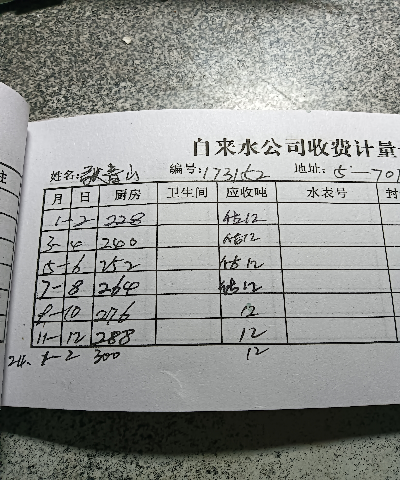 自来水公司收费计量
姓名: 山 编号:173152 地址: 5-701
月 日 厨房 卫生间 应收吨 水表号 封
1-2 228 估12
3-4 240 估12
5-6 252 估12
7-8 264 估12
9-10 276 12
11-12 288 12
24. 1-2 300 12